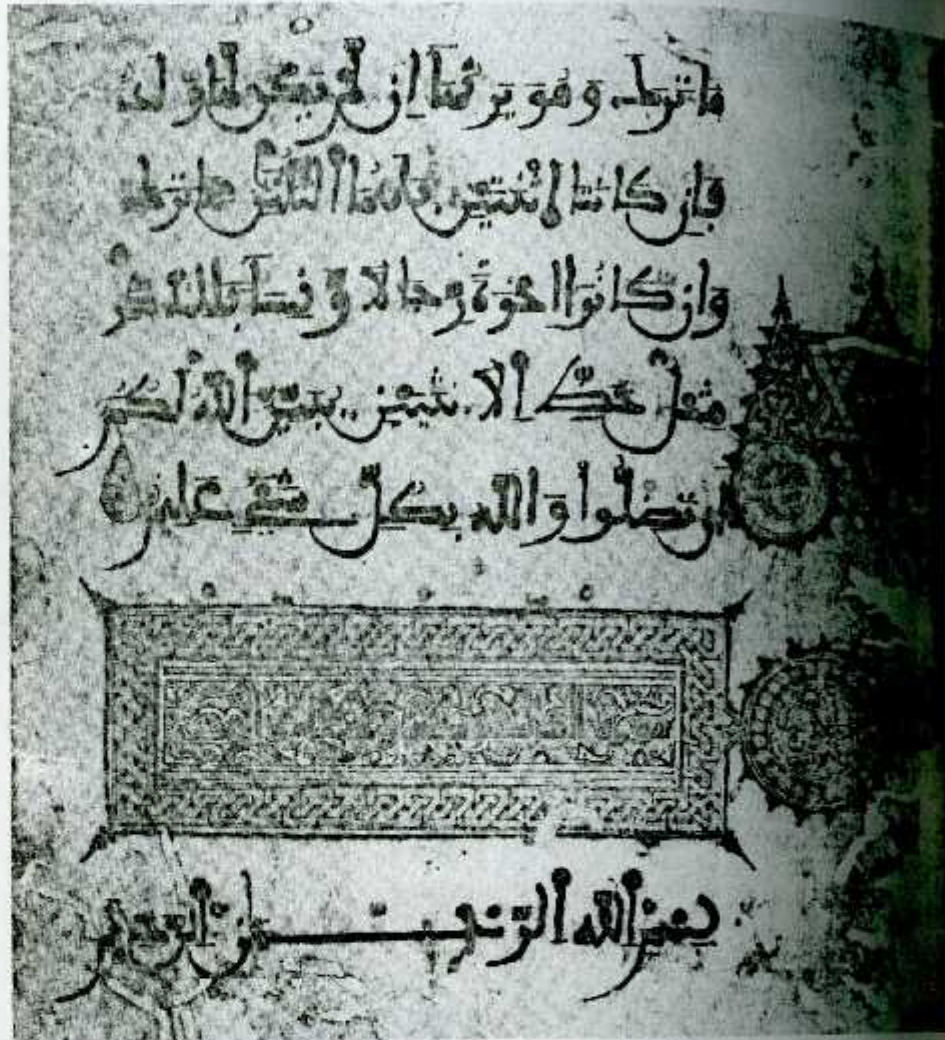 مَا تَرَكَ وَهُوَ يَرِثُهَا إِن لَّمْ يَكُن لَّهَا وَلَدٌ
فَإِن كَانَتَا اثْنَتَيْنِ فَلَهُمَا الثُّلُثَانِ مِمَّا تَرَكَ
وَإِن كَانُوا إِخْوَةً رِّجَالًا وَنِسَاءً فَلِلذَّكَرِ
مِثْلُ حَظِّ الْأُنثَيَيْنِ يُبَيِّنُ اللَّهُ لَكُمْ
أَن تَضِلُّوا وَاللَّهُ بِكُلِّ شَيْءٍ عَلِيمٌ
بِسْمِ اللَّهِ الرَّحْمَٰنِ الرَّحِيمِ